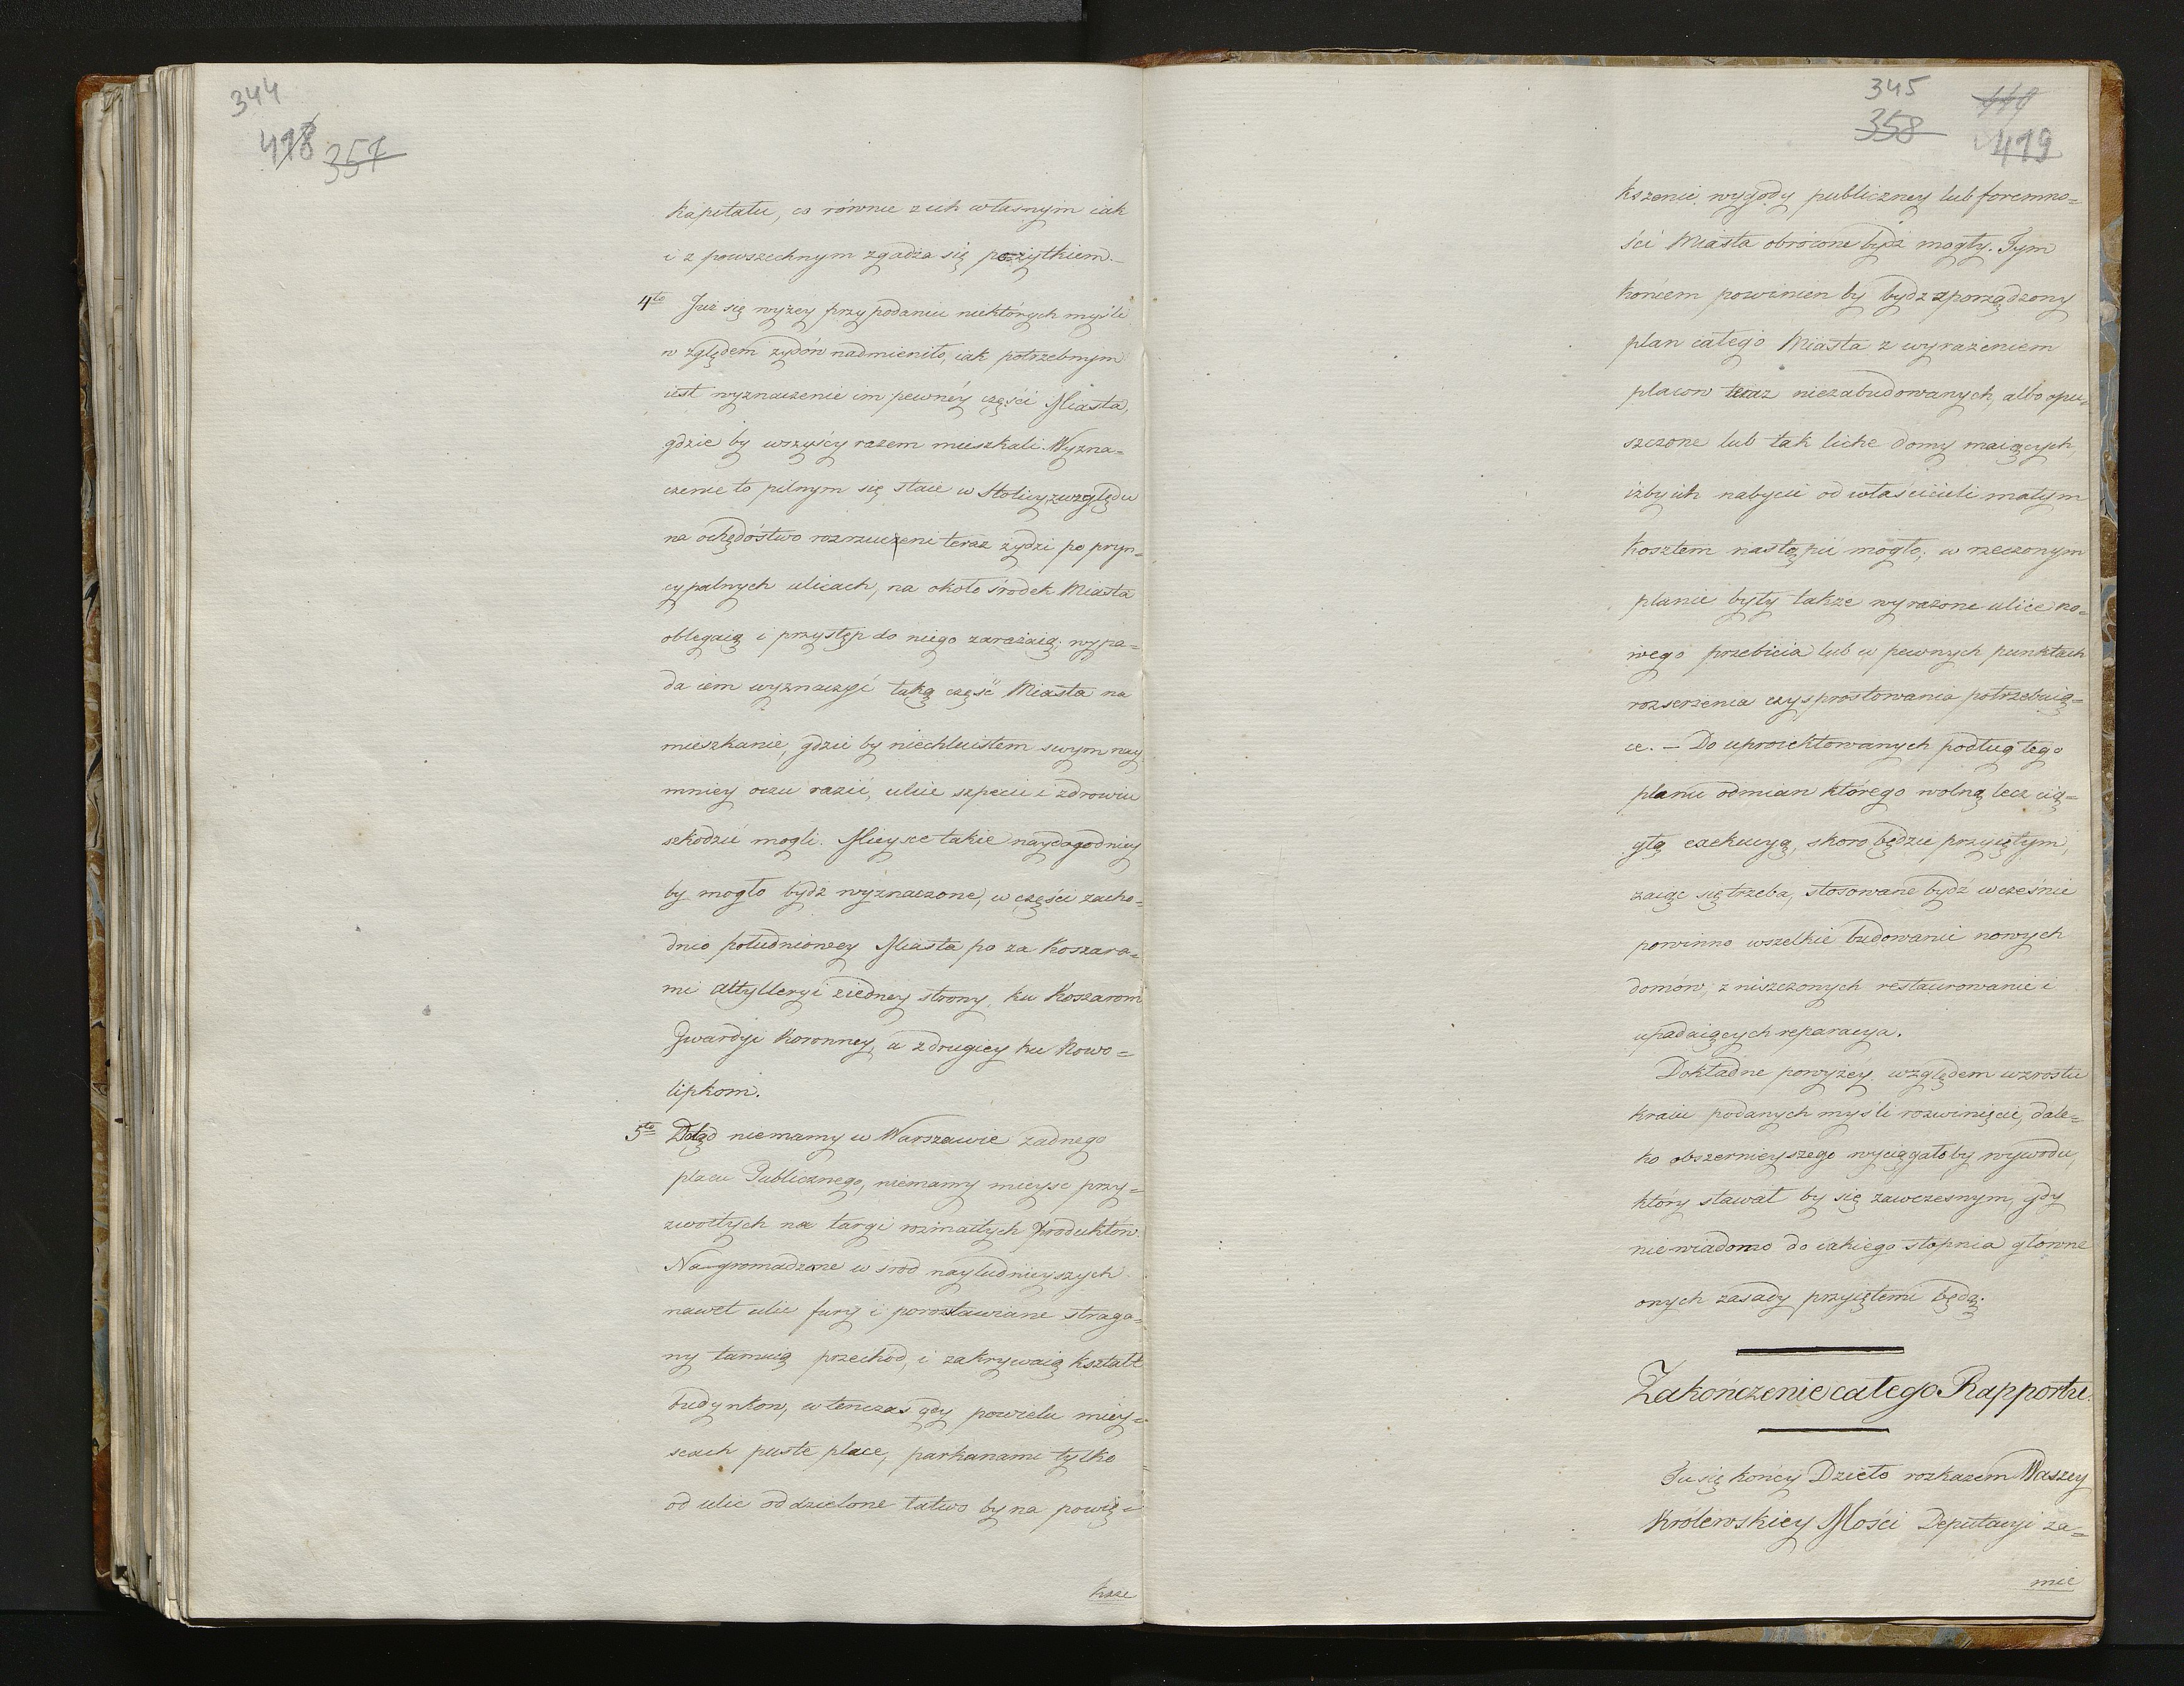 344
418 357
kapitału, co równie z ich własnym iak
i z powszechnym zgadza się pożytkiem.
4to Już się wyżey przy podaniu niektórych myśli
względem żydów nadmieniło, iak potrzebnym
iest wyznaczenie im pewnéy części Miasta,
gdzie by wszyscy razem mieszkali. Wyzna=
czenie to pilnym się staie w Stolicy, względu
na ochędóstwo rozrzuceni teraz żydzi po pryn=
cypalnych ulicach, na około środek Miasta
oblegaią i przystęp do niego zarażaią; wypa=
da iem wyznaczyć taką część Miasta na
mieszkanie, gdzie by niechluistem swym nay
mniey oczu razić, ulic szpecić i zdrowiu
szkodzić mogli. Mieysce takie naydogodniey
by mogło bydź wyznaczone, w części zacho=
dnio południowey Miasta po za Koszara=
mi Attylleryi ziedney strony, ku Koszarom
Gwardyi Koronney, a z drugiey ku Nowo=
lipkom.
5to Dotąd niemamy w Warszawie żadnego
placu Publicznego, niemamy mieysc przy=
zwoitych na targi rozmaitych Produktów.
Nagromadzone w śród nayludnieyszych
nawet ulic fury i porozstawiane straga=
ny tamuią przechód, i zakrywaią kształt
budynkow, w tenczas gdy po wielu miey=
scach puste place, parkanami tylko
od ulic oddzielone łatwo by na powię=
ksze
345
358
419
kszenie wygody publiczney lub foremno=
ści Miasta obrócone bydź mogły. Tym
końcem powinien by bydź zporządzony
plan całego Miasta z wyrażeniem
placow teraz niezabudowanych, albo opu=
szczone lub tak liche domy maiących,
iżby ich nabycie od właścicieli małym
kosztem nastąpić mogło; w rzeczonym
planie były także wyrażone ulice no=
wego przebicia lub w pewnych punktach
rozserzenia czy sprostowania potrzebuią=
ce. – Do uproiektowanych podług tego
planu odmian którego wolną lecz cią=
głą exekucyą, skoro będzie przyiętym,
zaiąc się trzeba, stosowane bydź wcześnie
powinno wszelkie budowanie nowych
domów, zniszczonych restaurowanie i
upadaiących reparacya.
Dokładne powyżey względem wzrostu
kraiu podanych myśli rozwinięcie, dale=
ko obszernieyszego wyciągałoby wywodu,
który stawał by się zawczesnym, gdy
niewiadomo do iakiego stopnia główne
onych zasady przyiętemi będą.
Zakończenie całego Rapportu.
Tu się kończy Dzieło rozkazem Waszey
Królewskiey Mości Deputacyi za=
mie